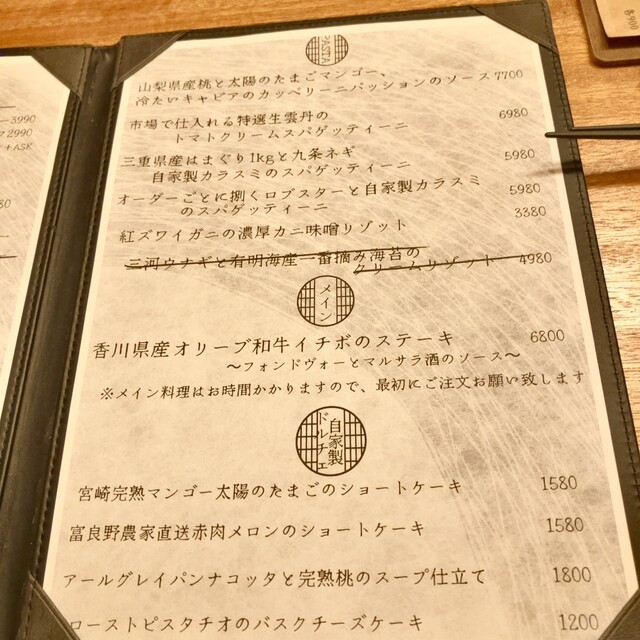 PASTA
山梨県産桃と太陽のたまごマンゴー、
冷たいキャビアのカッペリーニパッションのソース 7700
市場で仕入れる特選生雲丹の 6980
トマトクリームスパゲッティーニ
三重県産はまぐり1kgと九条ネギ 5980
自家製カラスミのスパゲッティーニ
オーダーごとに捌くロブスターと自家製カラスミ 5980
のスパゲッティーニ
紅ズワイガニの濃厚カニ味噌リゾット 3380
三河ウナギと有明海産一番摘み海苔の
クリームリゾット 4980
メイン
香川県産オリーブ和牛イチボのステーキ 6800
～フォンドヴォーとマルサラ酒のソース～
※メイン料理はお時間かかりますので、最初にご注文お願い致します
自家製
ドルチェ
宮崎完熟マンゴー太陽のたまごのショートケーキ 1580
富良野農家直送赤肉メロンのショートケーキ 1580
アールグレイパンナコッタと完熟桃のスープ仕立て 1800
ローストピスタチオのバスクチーズケーキ 1200
3990
2990
+ASK